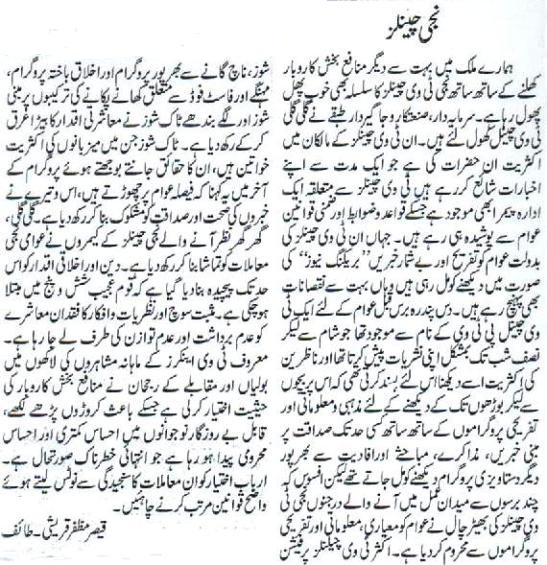 نجی چینلز
ہمارے ملک میں بہت سے دیگر منافع بخش کاروبار
کھلنے کے ساتھ ساتھ نجی ٹی وی چینلز کا سلسلہ بھی خوب پھل
پھول رہا ہے۔ سرمایہ دار، صنعتکار و جاگیردار طبقے نے گلی گلی
ٹی وی چینل کھول لئے ہیں۔ ان ٹی وی چینلز کے مالکان میں
اکثریت ان حضرات کی ہے جو ایک مدت سے اپنے
اخبارات شائع کر رہے ہیں ٹی وی چینلز سے متعلقہ ایک
ادارہ پیمرا بھی موجود ہے جسکے قواعد و ضوابط اور ضمنی قوانین
عوام سے پوشیدہ ہی رہے ہیں۔ جہاں ان ٹی وی چینلز کی
بدولت عوام کو تفریح اور بے شمار خبریں ”بریکنگ نیوز“ کی
صورت میں دیکھنے کو مل رہی ہیں وہاں بہت سے نقصانات
بھی پہنچ رہے ہیں۔ دس پندرہ برس قبل عوام کے لئے ایک ٹی
وی چینل پی ٹی وی کے نام سے موجود تھا جو شام سے لیکر
نصف شب تک بمشکل اپنی نشریات پیش کرتا تھا اور ناظرین
کی اکثریت اسے دیکھنا اس لئے پسند کرتی تھی کہ اس پر بچوں
سے لیکر بوڑھوں تک کے دیکھنے کے لئے مذہبی و معلوماتی اور
تفریحی پروگراموں کے ساتھ ساتھ کسی حد تک صداقت پر
مبنی خبریں، مذاکرے، مباحثے اور افادیت سے بھرپور
دیگر دستاویزی پروگرام دیکھنے کو مل جاتے تھے لیکن افسوس کہ
چند برسوں سے میدان عمل میں آنے والے درجنوں نجی ٹی
وی چینلز کی بھیڑ چال نے عوام کو معیاری، معلوماتی اور تفریحی
پروگراموں سے محروم کر دیا ہے۔ اکثر ٹی وی چینلز پر فیشن
شوز، ناچ گانے سے بھرپور پروگرام اور اخلاق باختہ پروگرام،
مہنگے اور فاسٹ فوڈ سے متعلق کھانے پکانے کی ترکیبوں پر مبنی
شوز اور لگے بندھے ٹاک شوز نے معاشرتی اقدار کا بیڑا غرق
کر کے رکھ دیا ہے۔ ٹاک شوز جن میں میزبانوں کی اکثریت
خواتین ہیں، ان کا حقائق جانتے بوجھتے ہوئے پروگرام کے
آخر میں یہ کہنا کہ فیصلہ عوام پر چھوڑتے ہیں، اس وتیرے نے
خبروں کی صحت اور صداقت کو مشکوک بنا کر رکھ دیا ہے۔ گلی گلی،
گھر گھر نظر آنے والے نجی چینلز کے کیمروں نے عوامی نجی
معاملات کو تماشا بنا کر رکھ دیا ہے۔ دین اور اخلاقی اقدار کو اس
حد تک پیچیدہ بنا دیا گیا ہے کہ قوم عجیب شش و پنج میں مبتلا
ہو چکی ہے۔ مثبت سوچ اور نظریات و افکار کا فقدان معاشرے
کو عدم برداشت اور عدم توازن کی طرف لے جا رہا ہے۔
معروف ٹی وی اینکرز کے ماہانہ مشاہروں کی لاکھوں میں
بولیاں اور مقابلے کے رجحان نے منافع بخش کاروبار کی
حیثیت اختیار کر لی ہے جسکے باعث کروڑوں پڑھے لکھے،
قابل بے روزگار نوجوانوں میں احساس کمتری اور احساس
محرومی پیدا ہو رہا ہے جو انتہائی خطرناک صورتحال ہے۔
ارباب اختیار کو ان معاملات کا سنجیدگی سے نوٹس لیتے ہوئے
واضح قوانین مرتب کرنے چاہئیں۔
قیصر مظفر قریشی۔ طائف